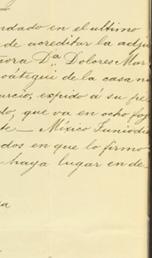 ndado en el ultimo
de acreditar la adju
ñora Dª Dolores Mar
oátegui de la casa no
urcio, expido á su pe
do, que va en ocho foj
te — México Junio di
dos en que lo firmo
haya lugar en de